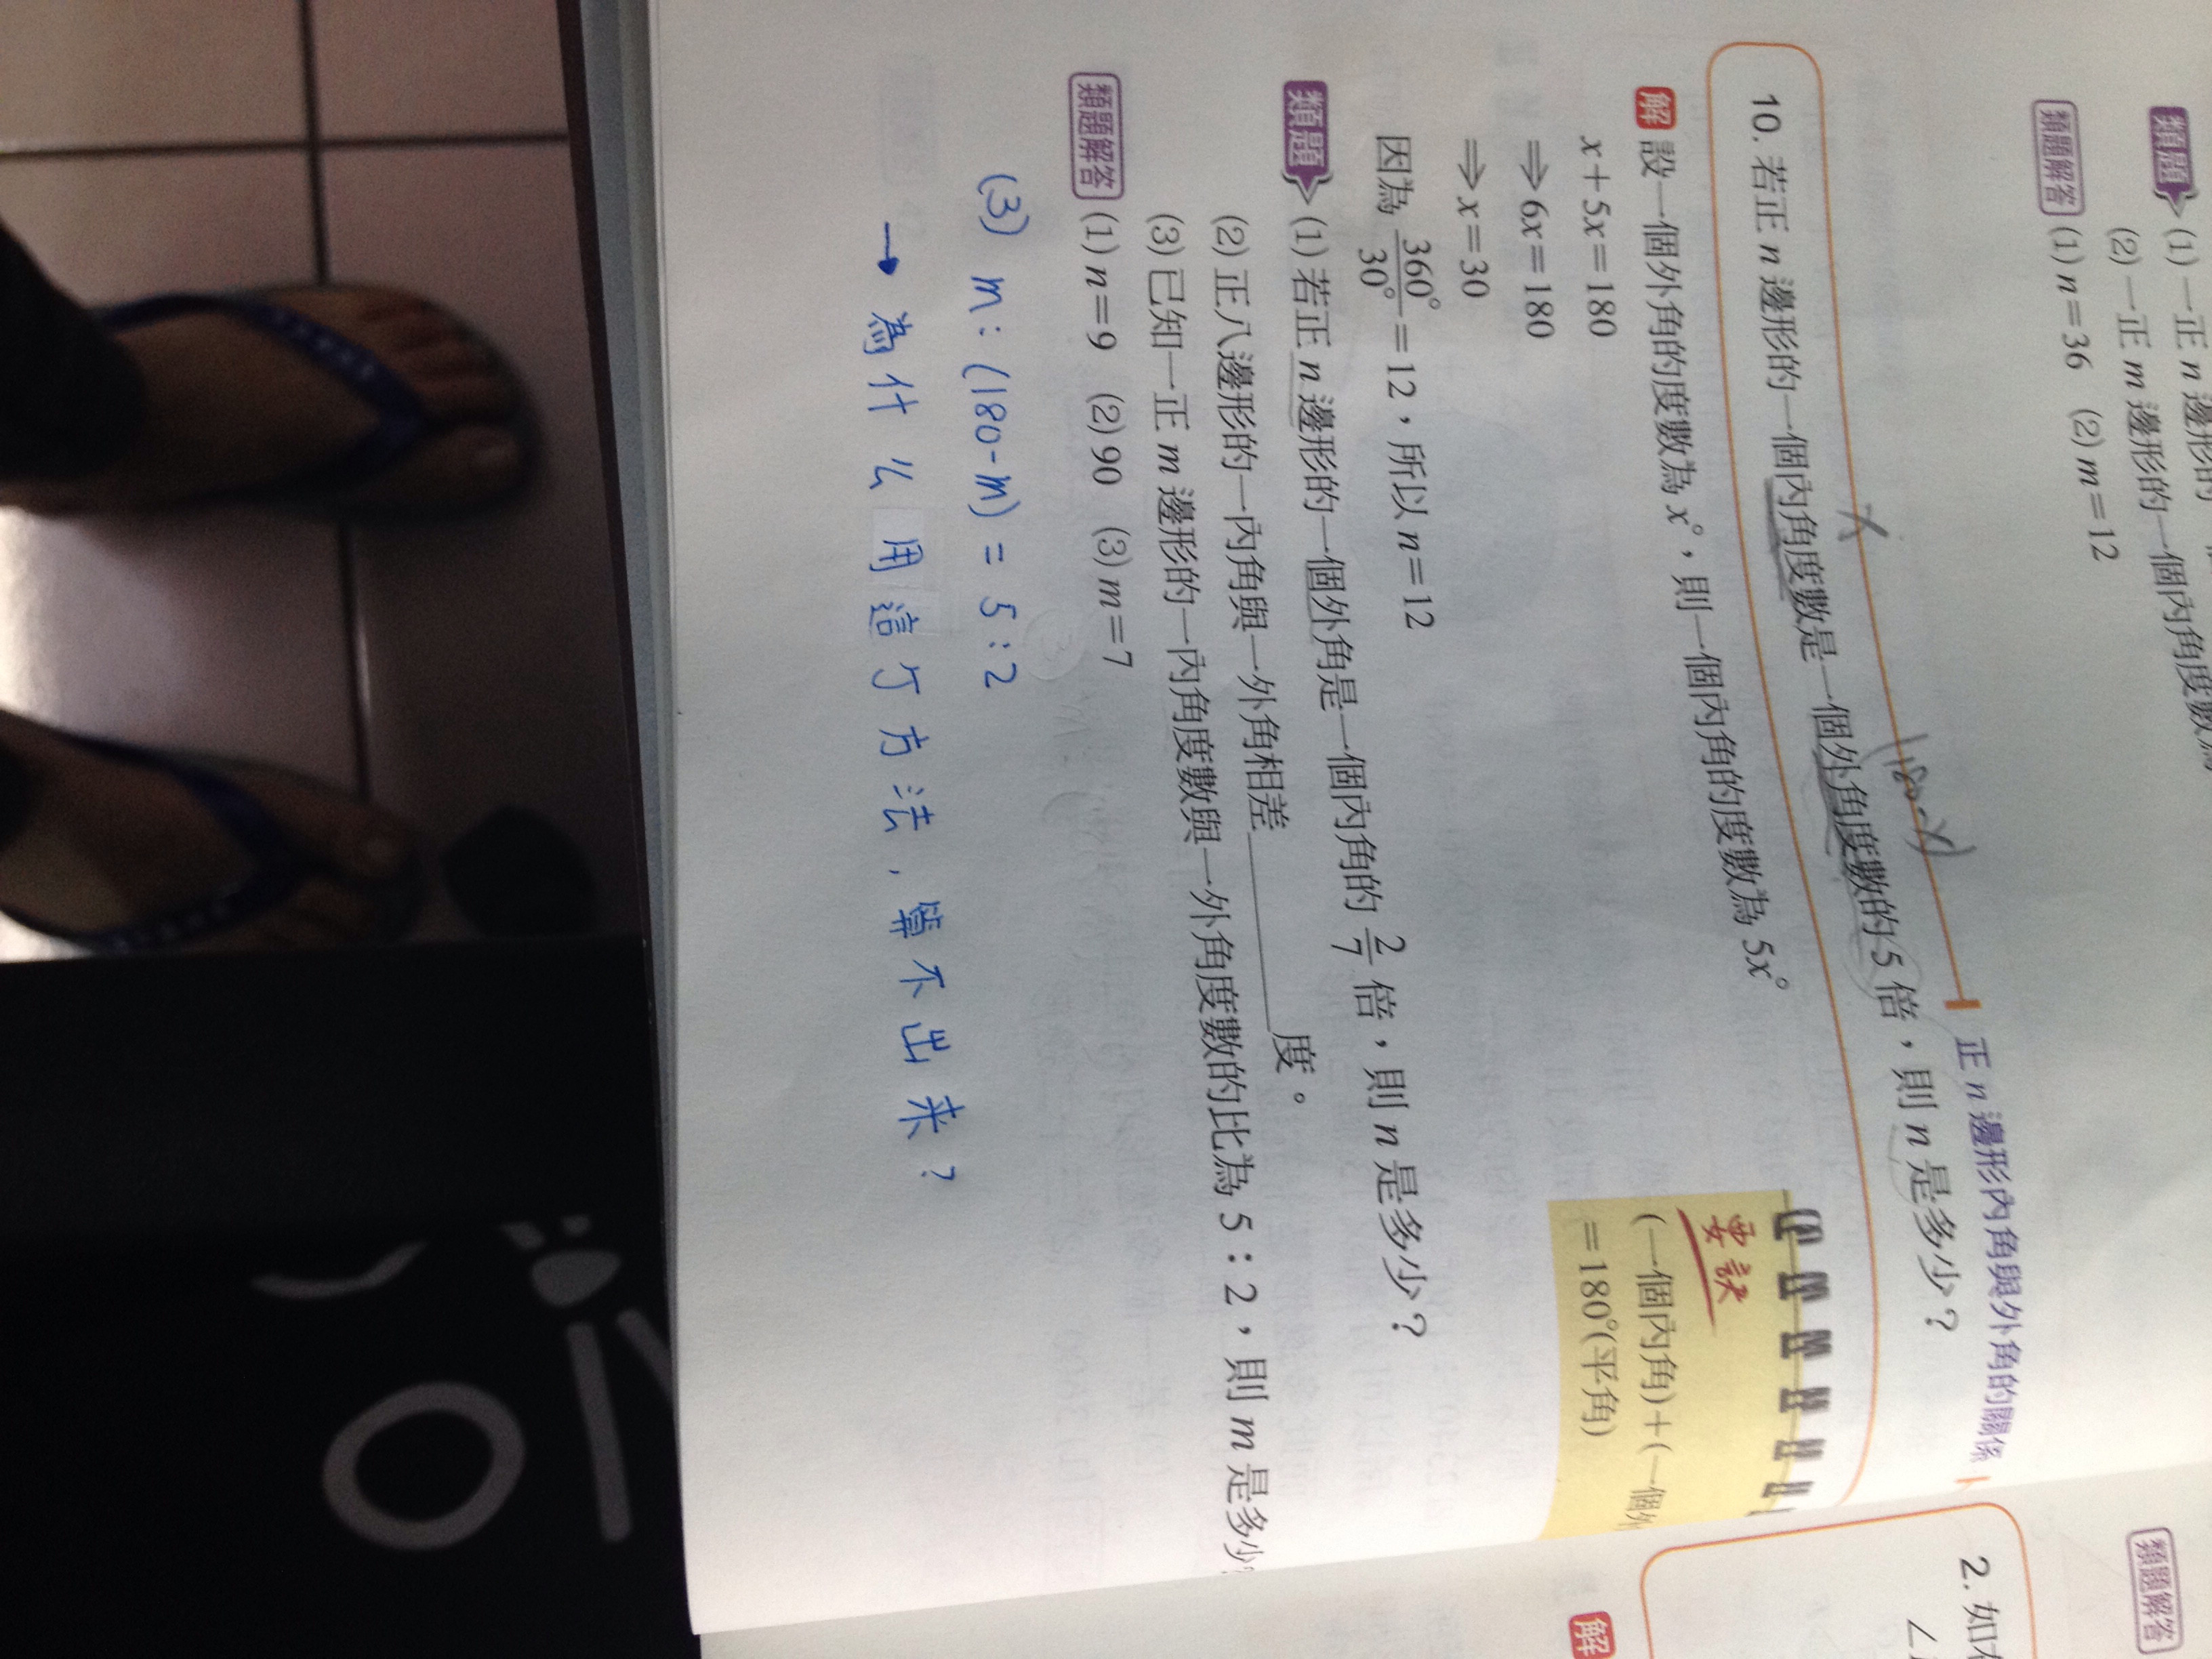 類題 (1) 一正 n 邊形的
(2) 一正 m 邊形的一個內角度數為
類題解答 (1) n＝36 (2) m＝12
正 n 邊形內角與外角的關係
x
(180-x)
10. 若正 n 邊形的一個內角度數是一個外角度數的 5 倍，則 n 是多少？
解 設一個外角的度數為 x°，則一個內角的度數為 5x°
x＋5x＝180
⇒ 6x＝180
⇒ x＝30
因為 360°/30° ＝12，所以 n＝12
要訣
(一個內角)＋(一個外
＝180°(平角)
類題 (1) 若正 n 邊形的一個外角是一個內角的 2/7 倍，則 n 是多少？
(2) 正八邊形的一內角與一外角相差______度。
(3) 已知一正 m 邊形的一內角度數與一外角度數的比為 5：2，則 m 是多少
類題解答 (1) n＝9 (2) 90 (3) m＝7
(3) m:(180-m) = 5:2
→ 為什么用這个方法,算不出来?
類題解答
2. 如
∠
解